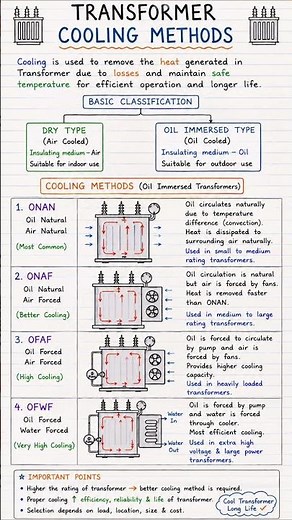 TRANSFORMER
COOLING METHODS
Cooling is used to remove the heat generated in
Transformer due to losses and maintain safe
temperature for efficient operation and longer life.
BASIC CLASSIFICATION
DRY TYPE
(Air Cooled)
Insulating medium - Air
Suitable for indoor use
OIL IMMERSED TYPE
(Oil Cooled)
Insulating medium - Oil
Suitable for outdoor use
COOLING METHODS (Oil Immersed Transformers)
1. ONAN
Oil Natural
Air Natural
(Most Common)
Oil circulates naturally
due to temperature
difference (convection).
Heat is dissipated to
surrounding air naturally.
Used in small to medium
rating transformers.
2. ONAF
Oil Natural
Air Forced
(Better Cooling)
Oil circulation is natural
but air is forced by fans.
Heat is removed faster
than ONAN.
Used in medium to large
rating transformers.
3. OFAF
Oil Forced
Air Forced
(High Cooling)
Oil is forced to circulate
by pump and air is
forced by fans.
Provides higher cooling
capacity.
Used in heavily loaded
transformers.
4. OFWF
Oil Forced
Water Forced
(Very High Cooling)
Water
In
Water
Out
Oil is forced by pump
and water is forced
through cooler.
Most efficient cooling.
Used in extra high
voltage & large power
transformers.
☆ IMPORTANT POINTS
• Higher the rating of transformer → better cooling method is required.
• Proper cooling ↑ efficiency, reliability & life of transformer.
• Selection depends on load, location, size & cost.
Cool Transformer
Long Life ✓